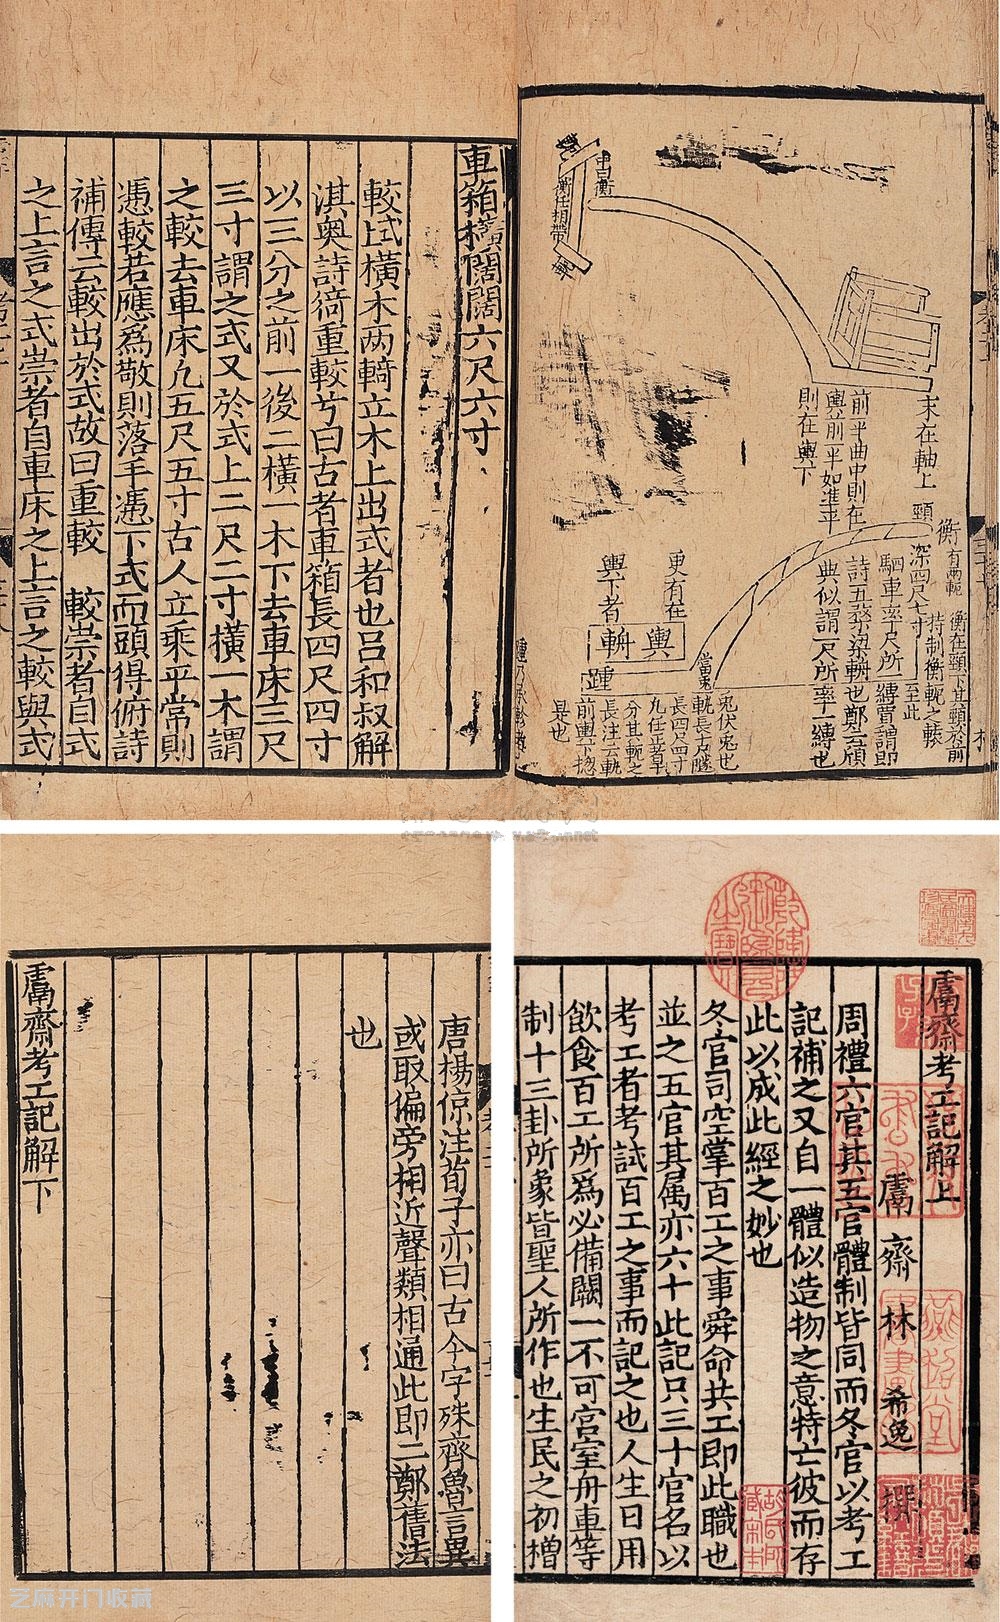 衡任相帶
末在軸上
前半曲中則在
輿前一半如進平
則在輿下
頸
衡有兩軛
衡在頸下其頸於前
持制衡軛之輳
深四尺七寸
至此
駟車率尺所一縛貫謂即
詩五楘梁輈也鄭云頎
典似謂一尺所率一縛也
更有在
輿下者
輿
輈
踵
當兔
兔伏兔也
軓長与隧
長四尺四寸
九任正者章
分其軓之
長注云軓
前輿下揔
是也
車箱橫闊六尺六寸
較式橫木兩輢立木上出式者也呂和叔解
淇奧詩猗重較兮曰古者車箱長四尺四寸
以三分之前一後二橫一木下去車床三尺
三寸謂之式又於式上二尺二寸橫一木謂
之較去車床凢五尺五寸古人立乘平常則
憑較若應爲敬則落手憑下式而頭得俯詩
補傳云較出於式故曰重較　較崇者自式
之上言之式崇者自車床之上言之較與式
唐楊倞注荀子亦曰古今字殊齊魯言異
或取偏旁相近聲類相通此即二鄭舊法
也
鬳齋考工記解下
鬳齋考工記解上
鬳齋林希逸撰
周禮六官其五官體制皆同而冬官以考工
記補之又自一體似造物之意特亡彼而存
此以成此經之妙也
冬官司空掌百工之事舜命共工即此職也
並之五官其属亦六十此記只三十官名以
考工者考試百工之事而記之也人生日用
飲食百工所爲必備闕一不可宮室舟車等
制十三卦所象皆聖人所作也生民之初橧
乾隆御覽之寶
芝麻开门收藏